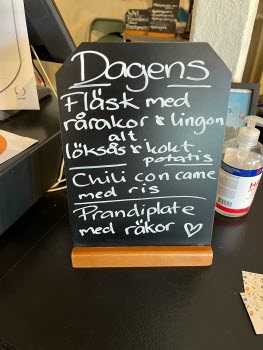 Dagens
Fläsk med
rårakor & lingon
alt.
löksås & kokt
potatis
Chili con carne
med ris
Prandiplate
med räkor ♡